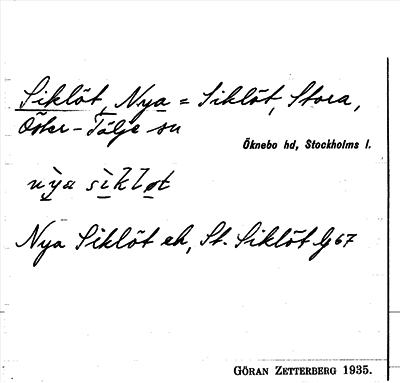 Siklöt, Nya = Siklöt, Stora,
Öster-Tälje sn
Öknebo hd, Stockholms l.
nỳa sìkløt
Nya Siklöt eh, St. Siklöt G 67
GÖRAN ZETTERBERG 1935.